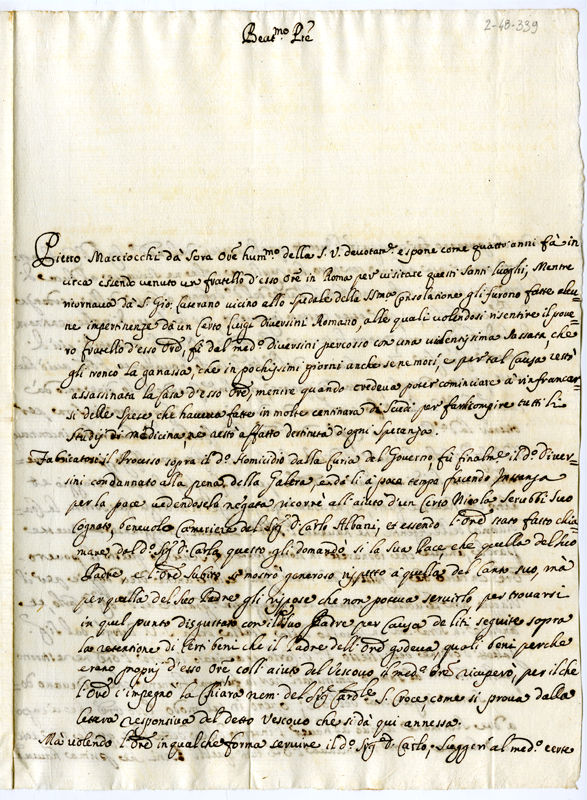 2-48-339
Beat.mo Pre
Pietro Macciocchi da Sora Ore hum.mo della S. V. devotam.e espone come quatto anni fà in
circa essendo venuto un fratello d'esso Ore in Roma per visitare questi Santi Luoghi, Mentre
ritornava da S. Gio: Laterano vicino allo Spedale della SSma Consolatione gli furono fatte alcu=
ne impertinenze da un Certo Luigi Diversini Romano, alle quali volendosi risentire il pove=
ro fratello d'esso Ord, fù dal med.o Diversini percosso con una violentissima Sassata che
gli troncò la ganassa, che in pochissimi giorni anche se ne morì, e per tal causa restò
assassinata la Casa d'esso Ord, mentre quando credeva poter cominciare à rinfrancar=
si delle Spese che haveva fatte in molte centinara di Scudi per far compire tutti li
Studij di medicina, ne restò affatto destituta d'ogni Speranza.
Fabricatosi il Processo sopra il d.o Homicidio dalla Curia del Governo, fù finalm.e il d.o Diver=
sini condannato alla pena della Galera, andò lì à poco tempo facendo Instanza
per la pace vedendosela negata ricorse all'aiuto d'un Certo Nicola Serubbi Suo
Cognato, benevolo Cameriere del Sig. D. Carlo Albani, et essendo l'Ord stato fatto chia
mare dal d.o Sig. D. Carlo, questo gli domandò si la Sua Pace che quella del Suo
Padre, e l'Ord Subito si mostrò generoso rispetto à quella del Canto Suo, mà
per quella del Suo Padre gli rispose che non poteva servirlo per trovarsi
in quel punto disgustato con il Suo Padre per Causa de liti seguite sopra
la retentione di Certi beni che il Padre dell'Ord godeva, quali beni perche
erano proprij d'esso Ore coll'aiuto del Vescovo il med.o Ore ricuperò, per il che
l'Ord c'impegnò la Chiara mem. del Sig. Card.le S. Croce, come si prova dalla
lettera responsiva del detto Vescovo che si dà qui annessa.
Mà volendo l'Ord in qualche forma servire il d.o Sig. D. Carlo, Suggerì al med.o certe